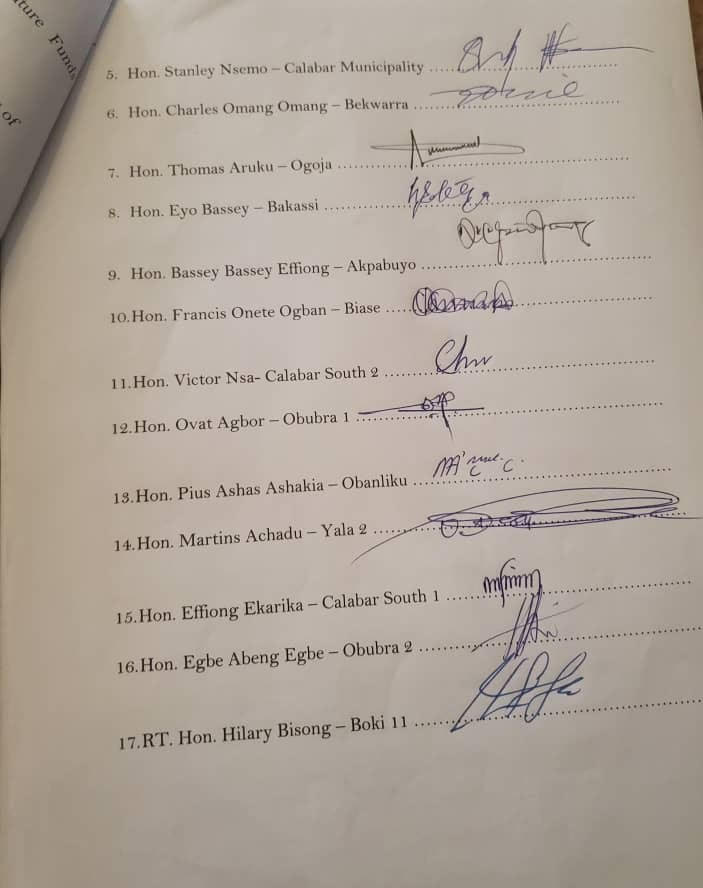 ture Funds
of
5. Hon. Stanley Nsemo – Calabar Municipality
6. Hon. Charles Omang Omang – Bekwarra
7. Hon. Thomas Aruku – Ogoja
8. Hon. Eyo Bassey – Bakassi
9. Hon. Bassey Bassey Effiong – Akpabuyo
10. Hon. Francis Onete Ogban – Biase
11. Hon. Victor Nsa- Calabar South 2
12. Hon. Ovat Agbor – Obubra 1
13. Hon. Pius Ashas Ashakia – Obanliku
14. Hon. Martins Achadu – Yala 2
15. Hon. Effiong Ekarika – Calabar South 1
16. Hon. Egbe Abeng Egbe – Obubra 2
17. RT. Hon. Hilary Bisong – Boki 11